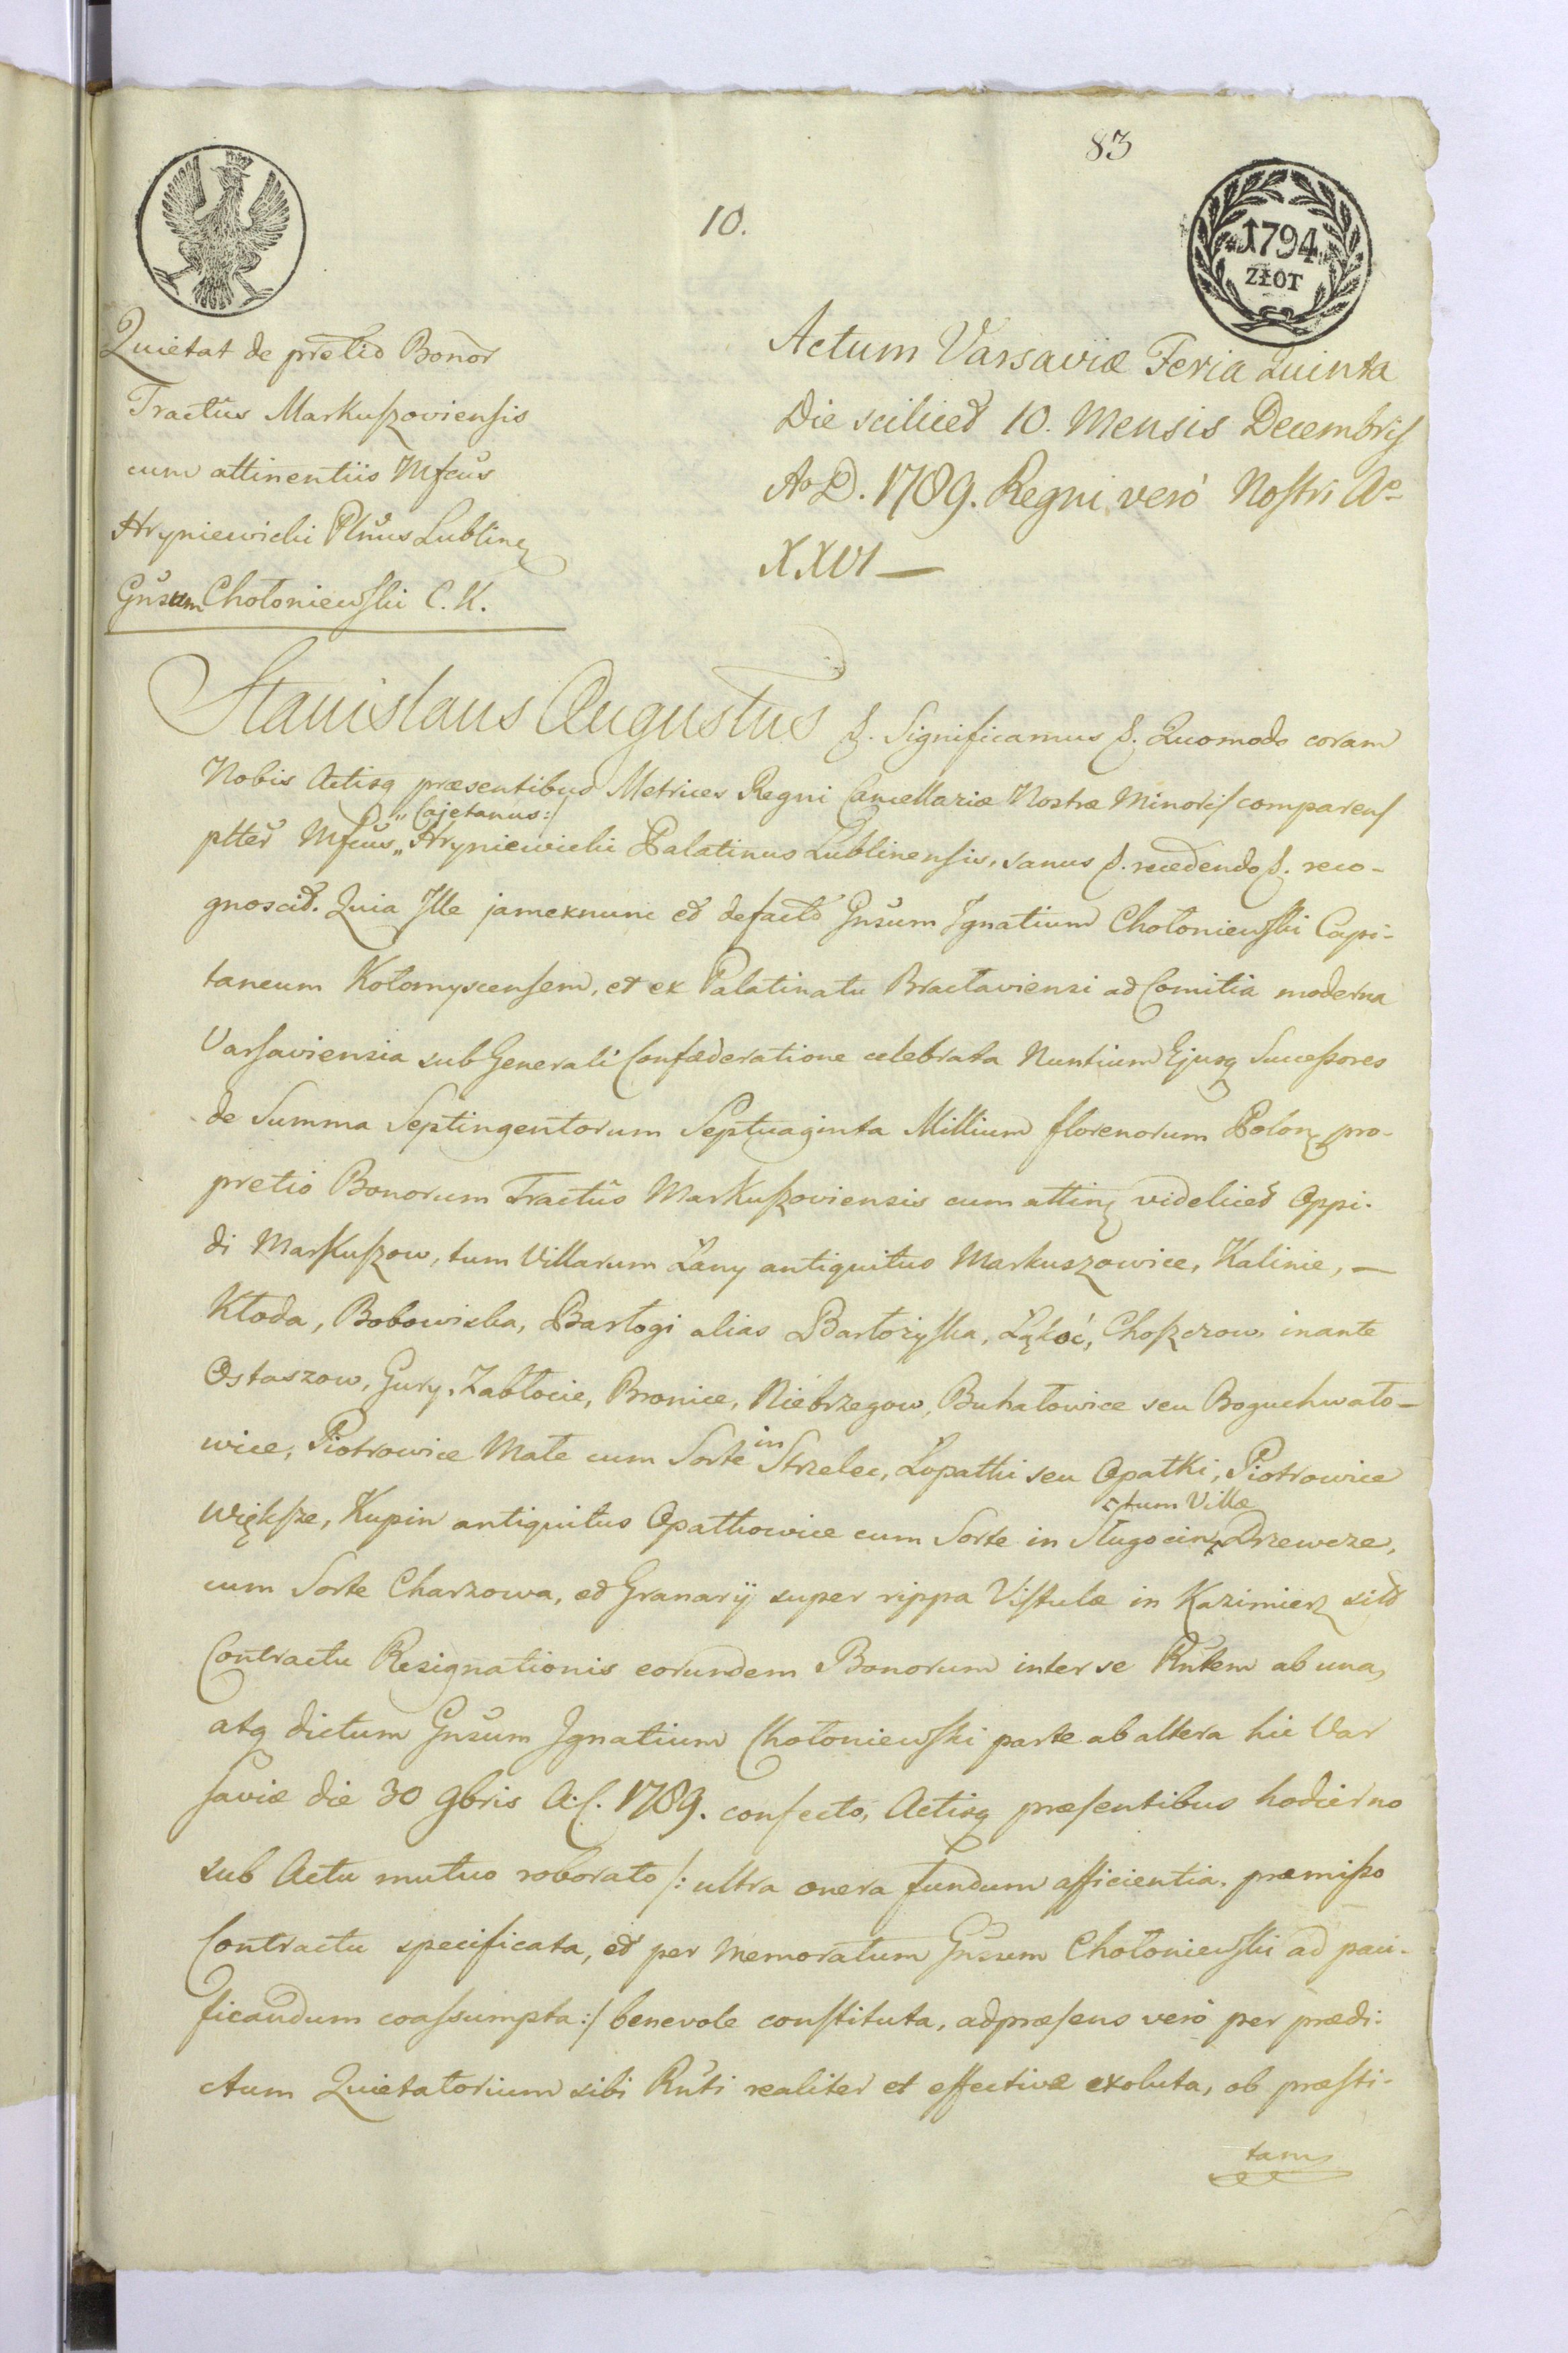 83
10.
1794
ZŁOT
Quietat de pretio Bonor
Tractûs Markuszoviensis
cum attinentiis Mfcus
Hryniewicki Pltnus Lublinẽ
Gnsum Chołoniewski C. K.
Actum Varsaviæ Feria Quinta
Die scilicet 10. Mensis Decembris
Ao D. 1789. Regni verò Nostri Ao
XXVI —
Stanislaus Augustus &. Significamus &. Quomodo coram
Nobis Actisq præsentibus Metrices Regni Cancellariæ Nostræ Minoris comparens
„Cajetanus:/
pltter Mfcus „ Hryniewicki Palatinus Lublinensis, sanus &. recedendo &. reco-
gnoscit. Quia Ille jamexnunc et defacto Gnsum Ignatium Chołoniewski Capi-
taneum Kołomyscensem, et ex Palatinatu Bracłaviensi ad Comitia moderna
Varsaviensia sub Generali Confæderatione celebrata Nuntium Ejusq Successores
de Summa Septingentorum Septuaginta Millium florenorum Polon pro-
pretio Bonorum Tractûs Markuszoviensis cum attin videlicet Oppi-
di Markuszow, tum Villarum Łany antiquitus Markuszowice, Kalinie, —
Kłoda, Bobowiska, Barłogi alias Bartożyska, Łąkoć, Choszczow, inante
Ostaszow, Gury, Zabłocie, Bronice, Niebrzegow, Buhałowice seu Boguchwało-
wice, Piotrowice Małe cum Sorte in Strzelce, Łopatki seu Opatki, Piotrowice
tum Villæ
Większe, Kupin antiquitus Opatkowice cum Sorte in Sługocin, Drzewcze,
cum Sorte Charzowa, et Granarij super rippa Vistulæ in Kazimierz sitd
Contractu Resignationis eorundem Bonorum inter se Rntem ab una,
atq dictum Gnsum Ignatium Chołoniewski parte ab altera hic Var
saviæ die 30 9bris A. C. 1789. confecto, Actisq præsentibus hodierno
sub Actu mutuo roborato /: ultra onera fundum afficientia, præmisso
Contractu specificata, et per Memoratum Gnsum Chołoniewski ad paci-
ficandum coassumpta :/ benevole constituta, adpræsens verò per prædi-
ctum Quietatorium sibi Rnti realiter et effectivæ exoluta, ob præsti-
tam